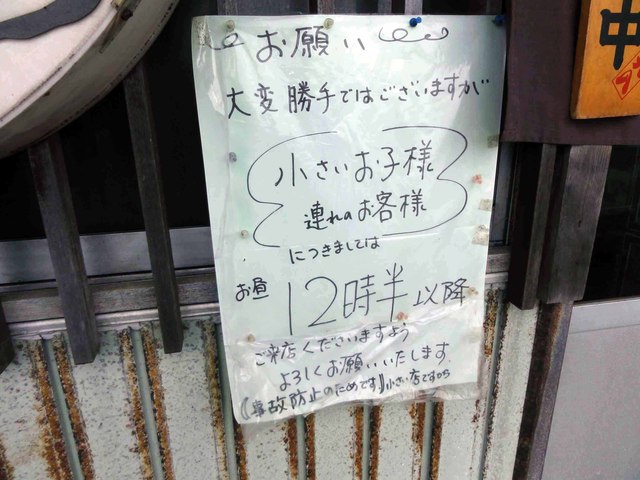 お願い
大変勝手ではございますが
小さいお子様
連れのお客様
につきましては
お昼 12時半以降
ご来店くださいますよう
よろしくお願いいたします
(事故防止のためです) 小さい店ですから
中